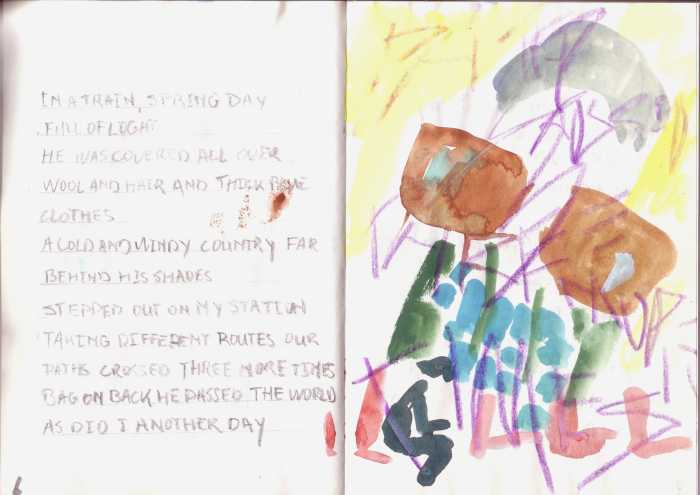 IN A TRAIN, SPRING DAY
FULL OF LIGHT
HE WAS COVERED ALL OVER
WOOL AND HAIR AND THICK
CLOTHES
A COLD AND WINDY COUNTRY FAR
BEHIND HIS SHADES
STEPPED OUT ON MY STATION
TAKING DIFFERENT ROUTES OUR
PATHS CROSSED THREE MORE TIMES
BAG ON BACK HE PASSED THE WORLD
AS DID I ANOTHER DAY
6